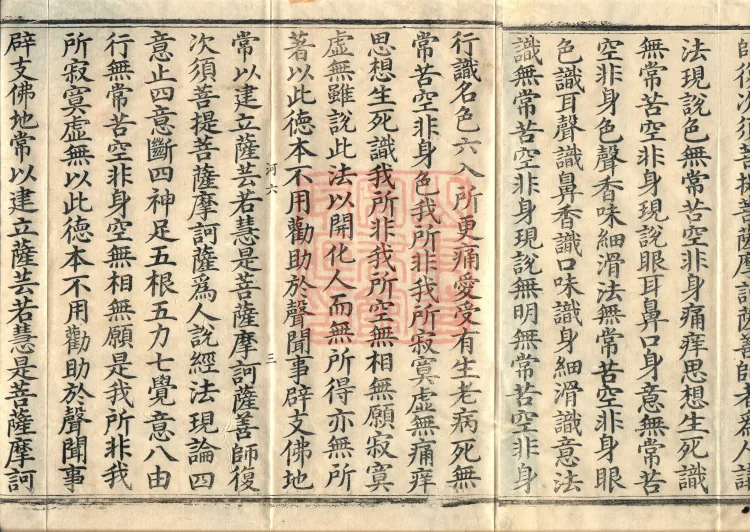 師復次須菩提菩薩摩訶薩善師者為人說
法現說色無常苦空非身痛痒思想生死識
無常苦空非身現說眼耳鼻口身意無常苦
空非身色聲香味細滑法無常苦空非身眼
色識耳聲識鼻香識口味識身細滑識意法
識無常苦空非身現說無明無常苦空非身
行識名色六入所更痛愛受有生老病死無
常苦空非身色我所非我所寂寞虛無痛痒
思想生死識我所非我所空無相無願寂寞
虛無雖說此法以開化人而無所得亦無所
著以此德本不用勸助於聲聞事辟支佛地
河六 三
常以建立薩芸若慧是菩薩摩訶薩善師復
次須菩提菩薩摩訶薩爲人說經法現論四
意止四意斷四神足五根五力七覺意八由
行無常苦空非身空無相無願是我所非我
所寂寞虛無以此德本不用勸助於聲聞事
辟支佛地常以建立薩芸若慧是菩薩摩訶